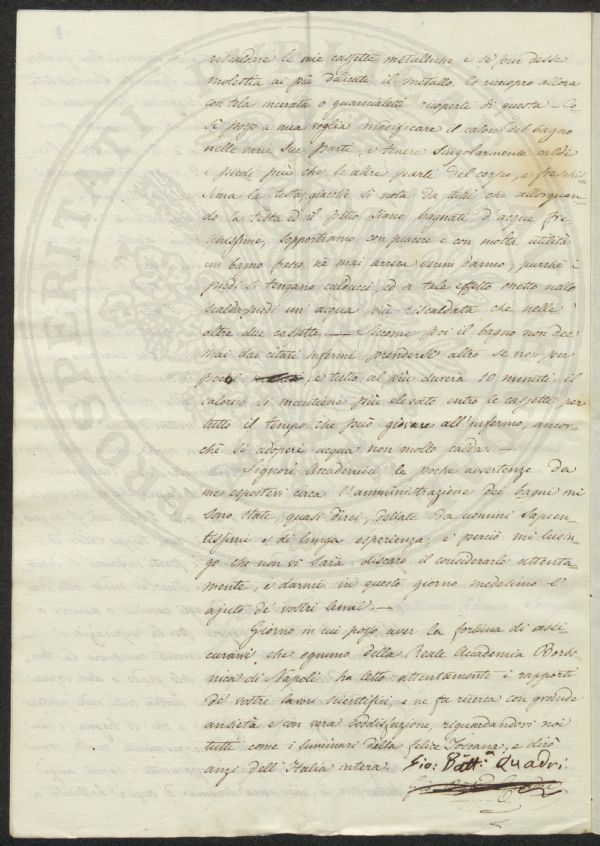 riscaldare le mie cassette metalliche e se pur desse
molestia ai più delicati il metallo lo ricuopro allora
con tela incerata o guancialetti ricoperti di questa. Co-
sì posso a mia voglia modificare il calore del bagno
nelle varie sue parti, e tenere singolarmente caldi
i piedi più che le altre parti del corpo, e freschis-
sima la testa, giacchè si nota da tutti che allorquan-
do la testa ed il petto siano bagnati d'acqua fre-
schissima, sopportiamo con piacere e con molta utilità
un bagno fresco nè mai arreca verun danno, purchè i
piedi si tengano calducci, ed a tale effetto metto nello
scaldapiedi un'acqua più riscaldata che nelle
altre due cassette. — Siccome poi il bagno non dee
mai dai citati infermi prendersi altro se non per
pochi, e tutto al più durerà 10 minuti, il
calorico si mantiene più elevato entro le cassette per
tutto il tempo che può giovare all'infermo, ancor-
chè si adoperi acqua non molto calda. —
Signori Accademici le poche avvertenze da
me espostevi circa l'amministrazione dei bagni mi
sono state, quasi direi, dettate da uomini sapien-
tissimi e di lunga esperienza, e perciò mi lusin-
go che non vi sarà discaro il considerarle attenta-
mente, e darmi in questo giorno medesimo l'
ajuto de' vostri lumi. —
Giorno in cui posso aver la fortuna di assi-
curarvi che ognuno della Reale Accademia Borbo-
nica di Napoli ha letto attentamente i rapporti
de' vostri lavori scientifici, e ne fa ricerca con grande
ansietà e con vera soddisfazione, riguardandovi noi
tutti come i luminari della felice Toscana, e dirò
anzi dell'Italia intera. Gio: Batt.a Quadri
PROSPERITATI